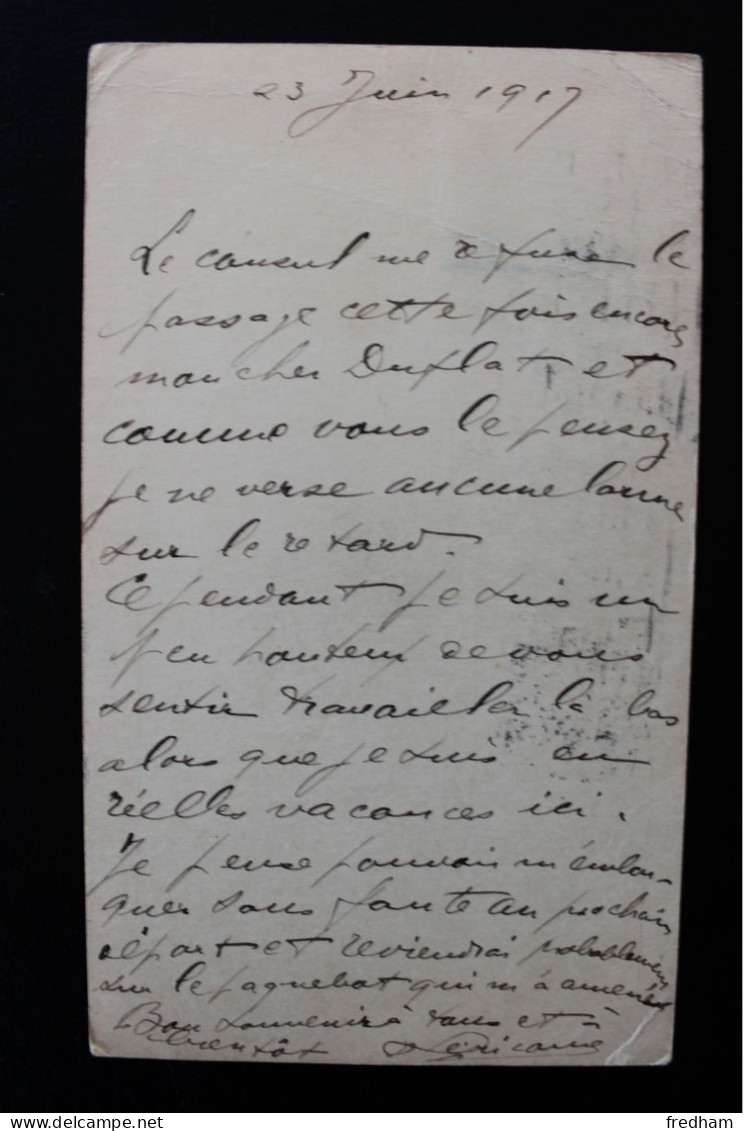 23 Juin 1917
Le consul me refuse le
passage cette fois encore
mon cher Duflat et
comme vous le pensez
je ne verse aucune larme
sur le retard.
Cependant je suis un
peu honteux de vous
sentir travailler là bas
alors que je suis en
réelles vacances ici.
Je pense pouvoir m'embar-
quer sans faute au prochain
départ et reviendrai probablement
sur le paquebot qui m'a amené
Bon souvenir à tous et à
bientôt
fredham